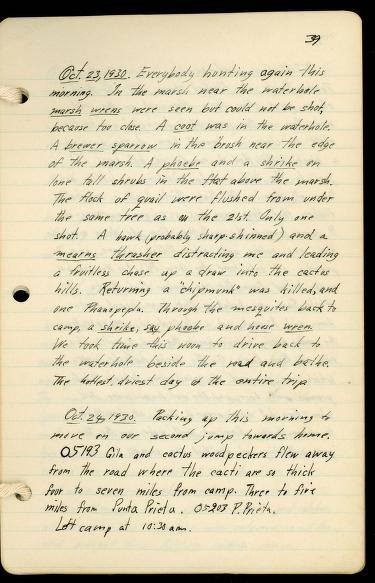 39
Oct. 23, 1930. Everybody hunting again this
morning. In the marsh near the waterhole
marsh wrens were seen but could not be shot,
because too close. A coot was in the waterhole.
A brewer sparrow in the brosh near the edge
of the marsh. A phoebe and a shrike on
lone tall shrubs in the flat above the marsh.
The flock of quail were flushed from under
the same tree as on the 21st. Only one
shot. A hawk (probably sharp-shinned) and a
mearns thrasher distracting me and leading
a fruitless chase up a draw into the cactus
hills. Returning a "chipmunk" was killed, and
one Phainopepla. Through the mesquites back to
camp, a shrike, say phoebe and house wren.
We took time this noon to drive back to
the waterhole beside the road and bathe.
The hottest, driest day of the entire trip
Oct. 24, 1930. Packing up this morning to
move on our second jump towards home.
05193 Gila and cactus woodpeckers flew away
from the road where the cacti are so thick
four to seven miles from camp. Three to five
miles from Punta Prieta. 05203 P. Prieta.
Left camp at 10:30 am.